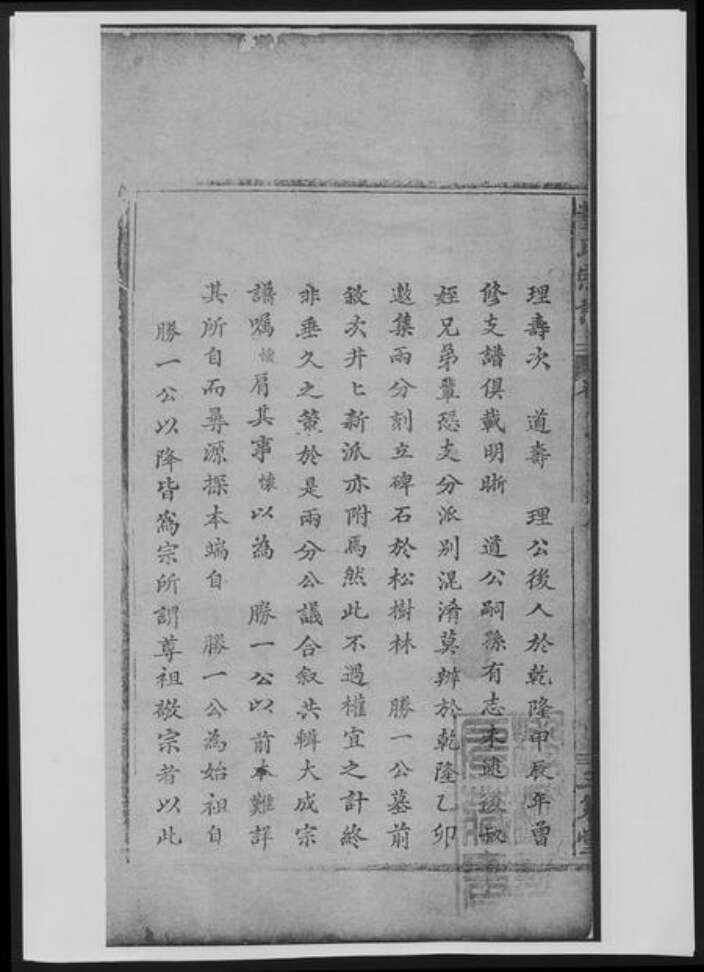 理壽次　道壽　理公後人於乾隆甲辰年曾
修支譜俱載明晰　道公嗣孫有志未逮後叔
姪兄弟輩恐支分派別混淆莫辦於乾隆乙卯
邀集兩分刻立碑石於松樹林　勝一公墓前
敘次井〻新派亦附焉然此不過權宜之計終
非垂久之策於是兩分公議合叙共輯大成宗
譜嘱懷肩其事懷以為　勝一公以前本難詳
其所自而尋源探本端自　勝一公為始祖自
勝一公以降皆爲宗所謂尊祖敬宗者以此